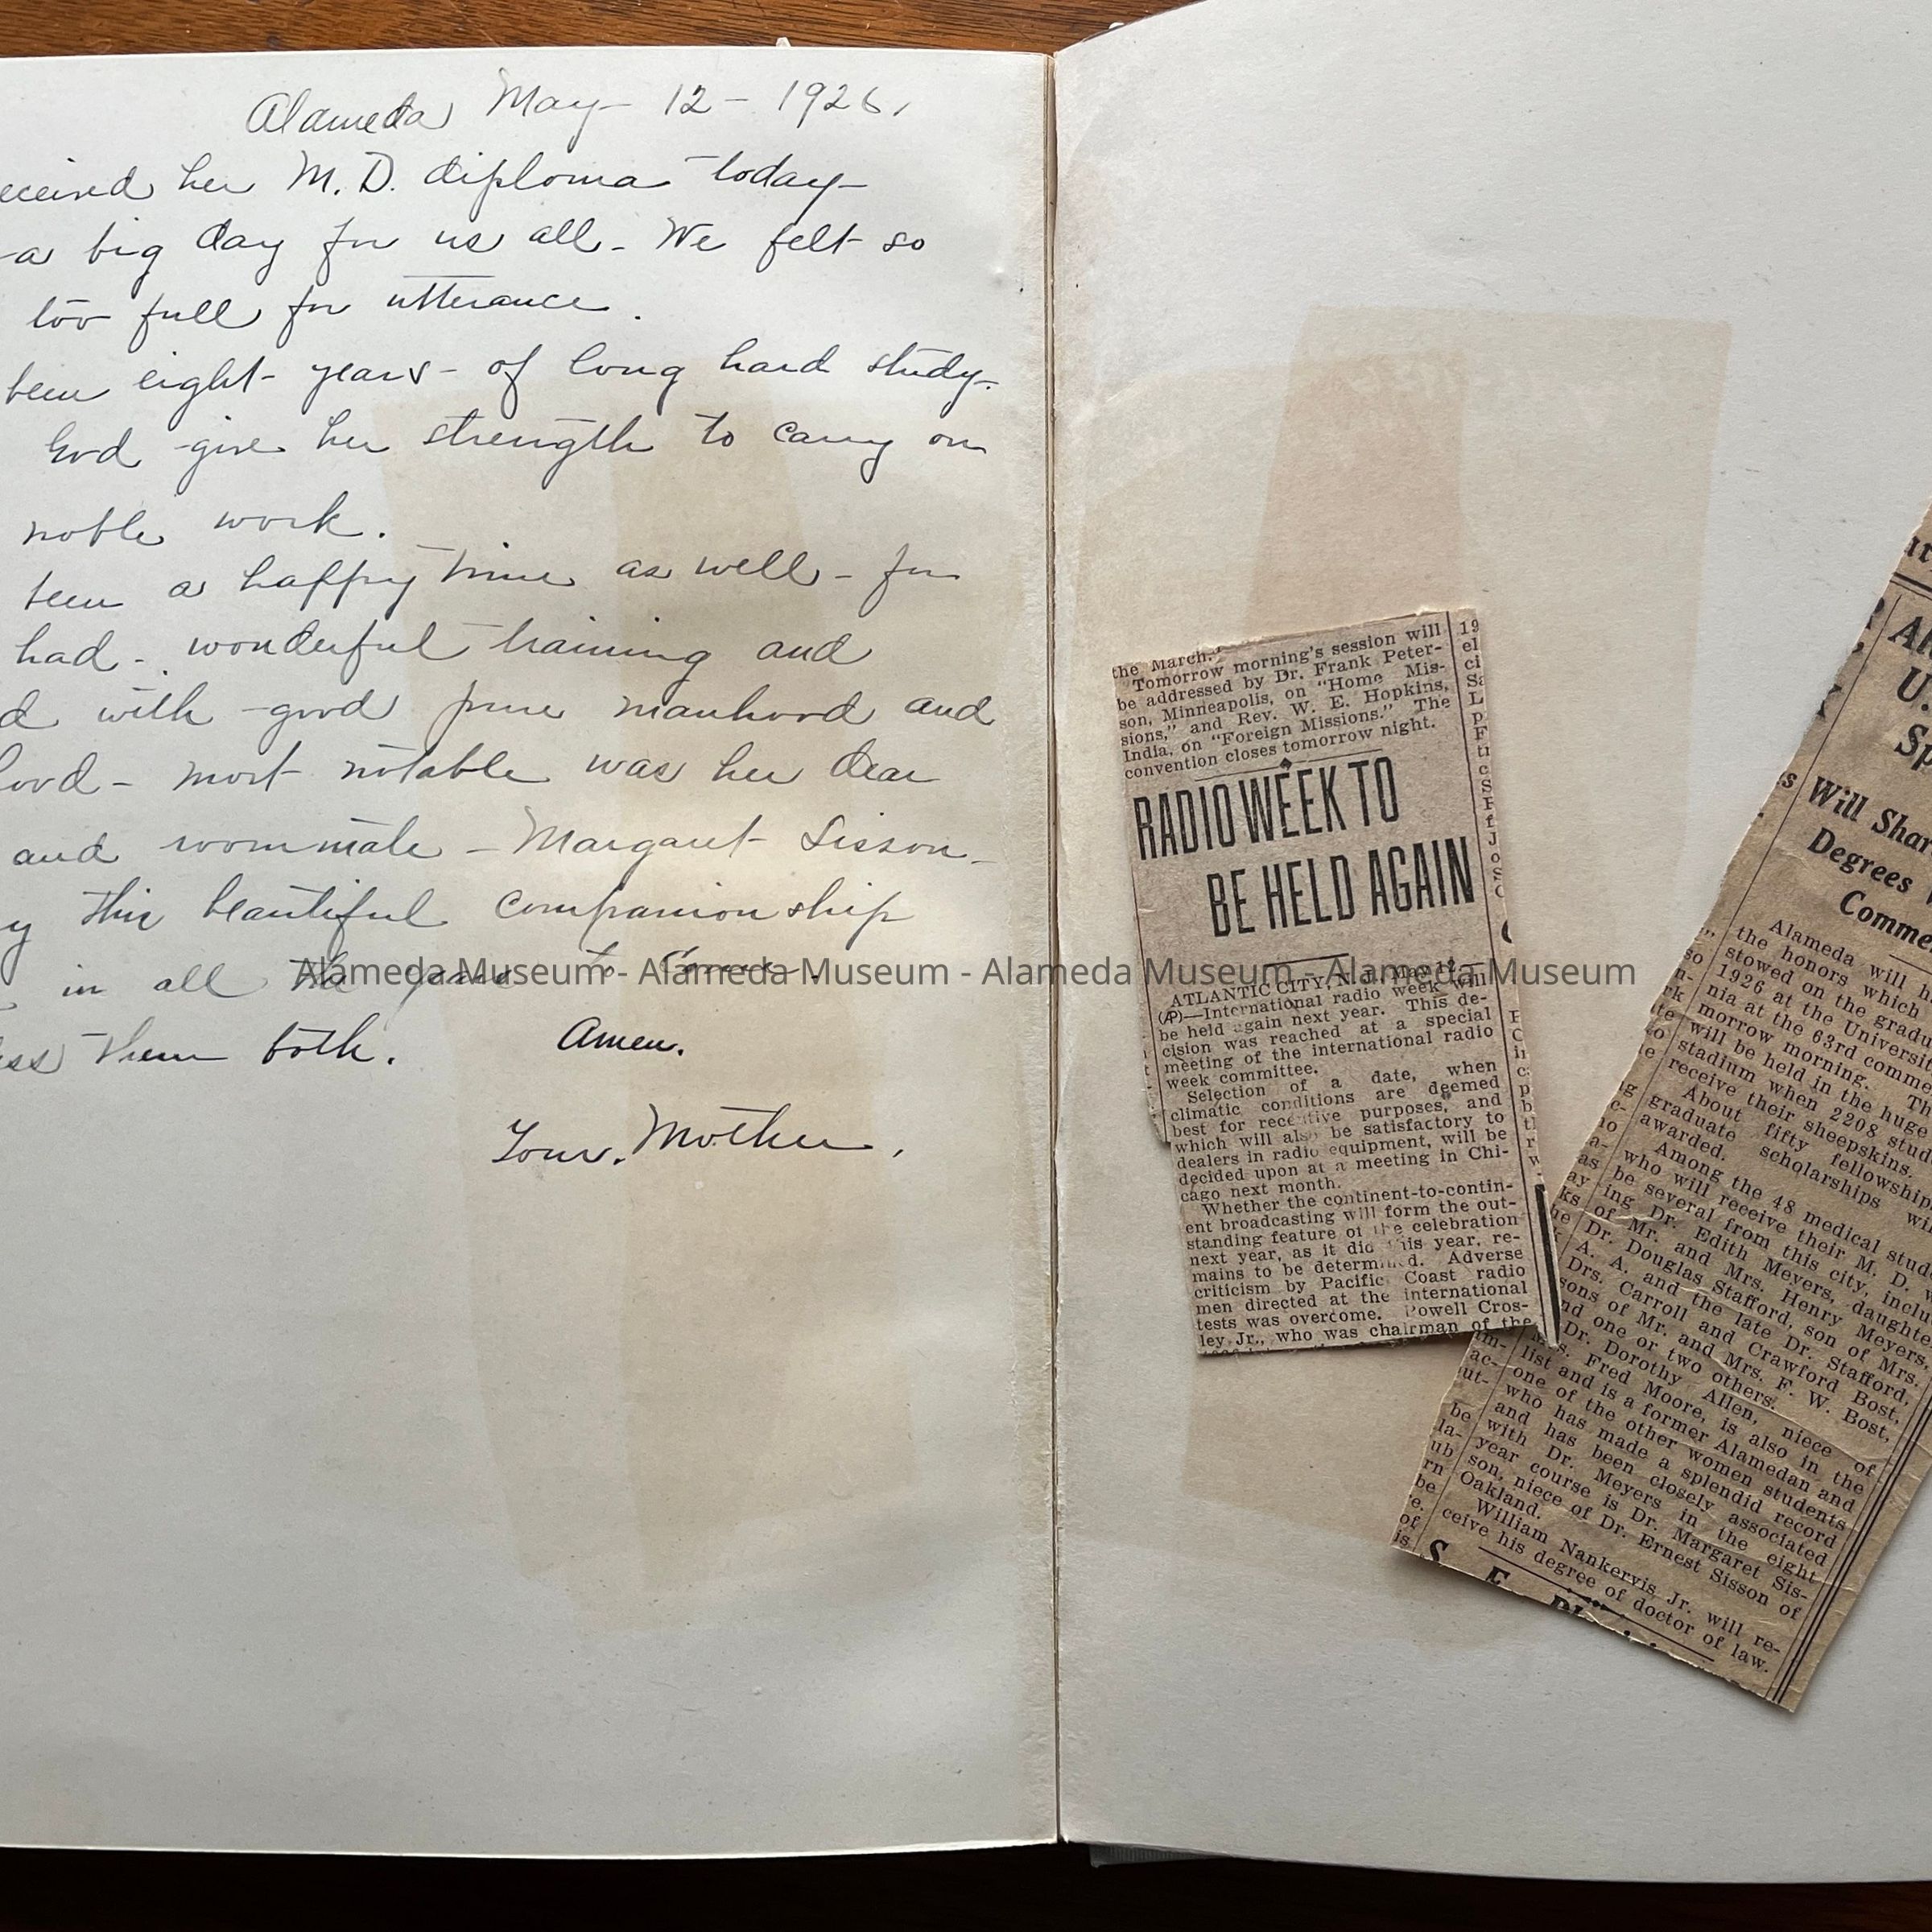 Alameda May - 12 - 1926.
eceived her M. D. diploma today -
- a big day for us all - We felt so
too full for utterance.
been eight - years - of long hard study -
God - give her strength to carry on
noble work.
been a happy time as well - for
had - wonderful training and
d with - good pure manhood and
hood - most notable was her dear
and roommate - Margaret Sisson -
y this beautiful companionship
in all the years to come.
ess them both. Amen.
Your Mother,
the March.
Tomorrow morning's session will
be addressed by Dr. Frank Peter-
son, Minneapolis, on "Home Mis-
sions," and Rev. W. E. Hopkins,
India, on "Foreign Missions." The
convention closes tomorrow night.
RADIO WEEK TO
BE HELD AGAIN
ATLANTIC CITY, N. J., May 12.—
(AP)—International radio week will
be held again next year. This de-
cision was reached at a special
meeting of the international radio
week committee.
Selection of a date, when
climatic conditions are deemed
best for receptive purposes, and
which will also be satisfactory to
dealers in radio equipment, will be
decided upon at a meeting in Chi-
cago next month.
Whether the continent-to-contin-
ent broadcasting will form the out-
standing feature of the celebration
next year, as it did this year, re-
mains to be determined. Adverse
criticism by Pacific Coast radio
men directed at the international
tests was overcome. Powell Cros-
ley Jr., who was chairman of the
U.
Sp
Will Shar
Degrees
Comme
Alameda will h
the honors which
stowed on the gradu
1926 at the Universit
nia at the 63rd comme
morrow morning. Th
will be held in the huge
stadium when 2208 stud
receive their sheepskins.
About fifty fellowship
graduate scholarships wil
awarded.
Among the 48 medical stud
who will receive their M. D. w
be several from this city, inclu
ing Dr. Edith Meyers, daughte
of Mr. and Mrs. Henry Meyers,
Dr. Douglas Stafford, son of Mrs.
A. A. and the late Dr. Stafford,
Drs. Carroll and Crawford Bost,
sons of Mr. and Mrs. F. W. Bost,
and one or two others.
Dr. Dorothy Allen, niece of
Mrs. Fred Moore, is also in the
list and is a former Alamedan and
one of the other women students
who has made a splendid record
and has been closely associated
with Dr. Meyers in the eight
year course is Dr. Margaret Sis-
son, niece of Dr. Ernest Sisson of
Oakland.
William Nankervis Jr. will re-
ceive his degree of doctor of law.
Alameda Museum - Alameda Museum - Alameda Museum - Alameda Museum